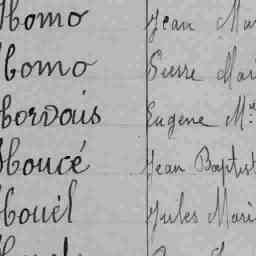 Homo Jean Mar
Homo Pierre Mari
Horvais Eugène M
Houcé Jean Baptist
Houël Jules Mari